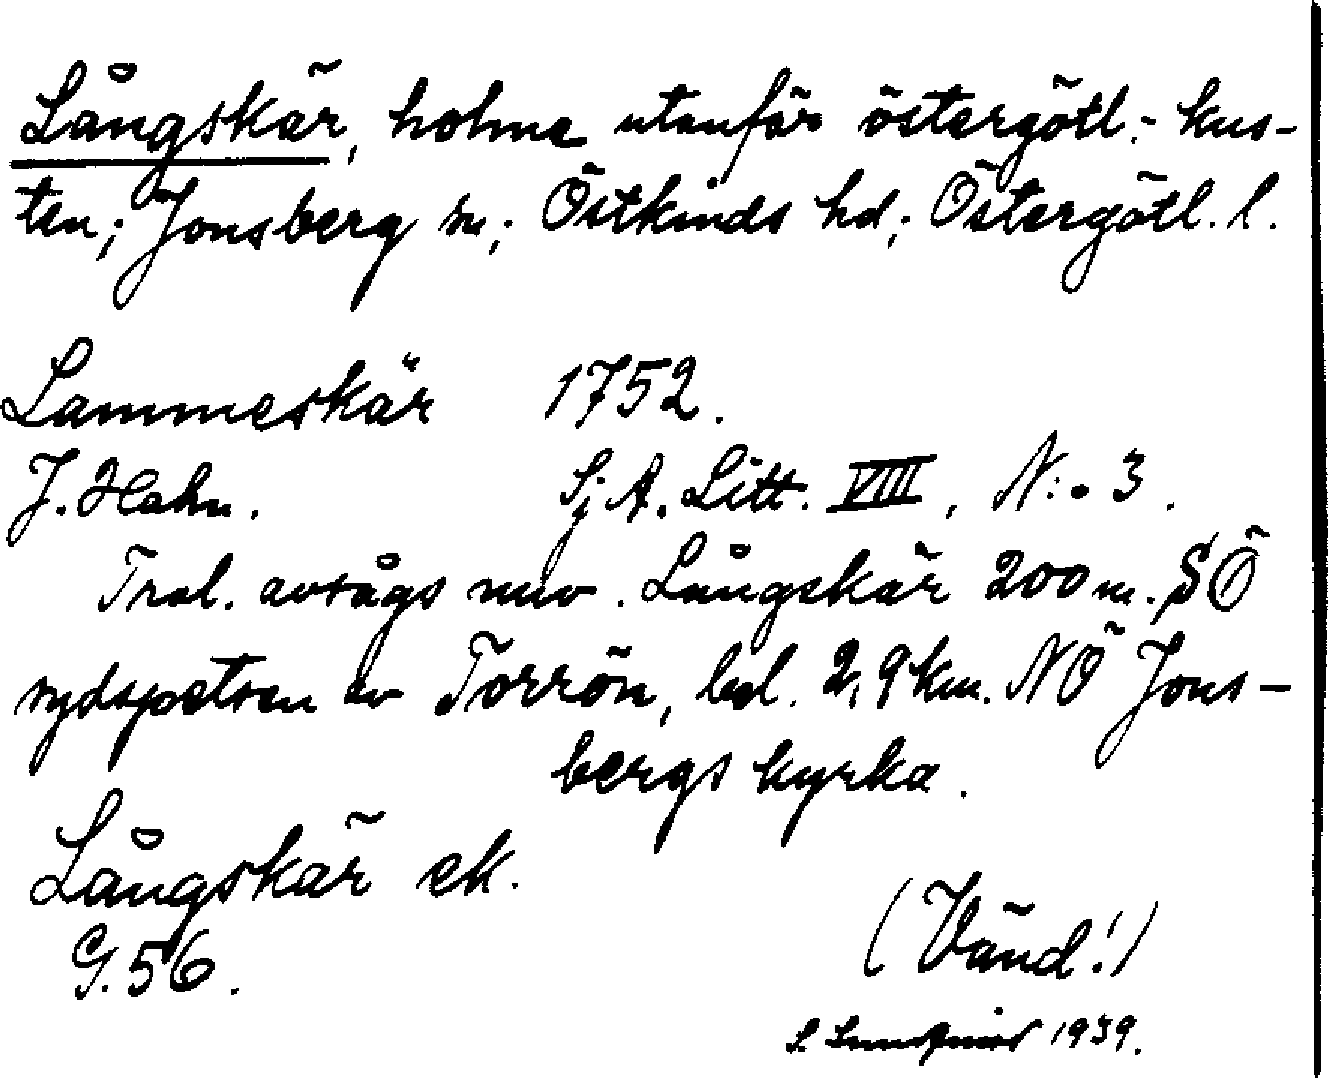 Långskär, holme utanför östergötl:- kus-
ten; Jonsberg sn; Östkinds hd; Östergötl. l.
Lammeskär 1752.
J. Hahn. Sj A. Litt. VIII, N:o 3.
Trol. avsågs nuv. Långskär 200 m. SÖ
sydspetsen av Torrön, bel. 2,9 km. NÖ Jons-
bergs kyrka.
Långskär ek.
G. 56.
(Vänd!)
S. Lundqvist 1939.